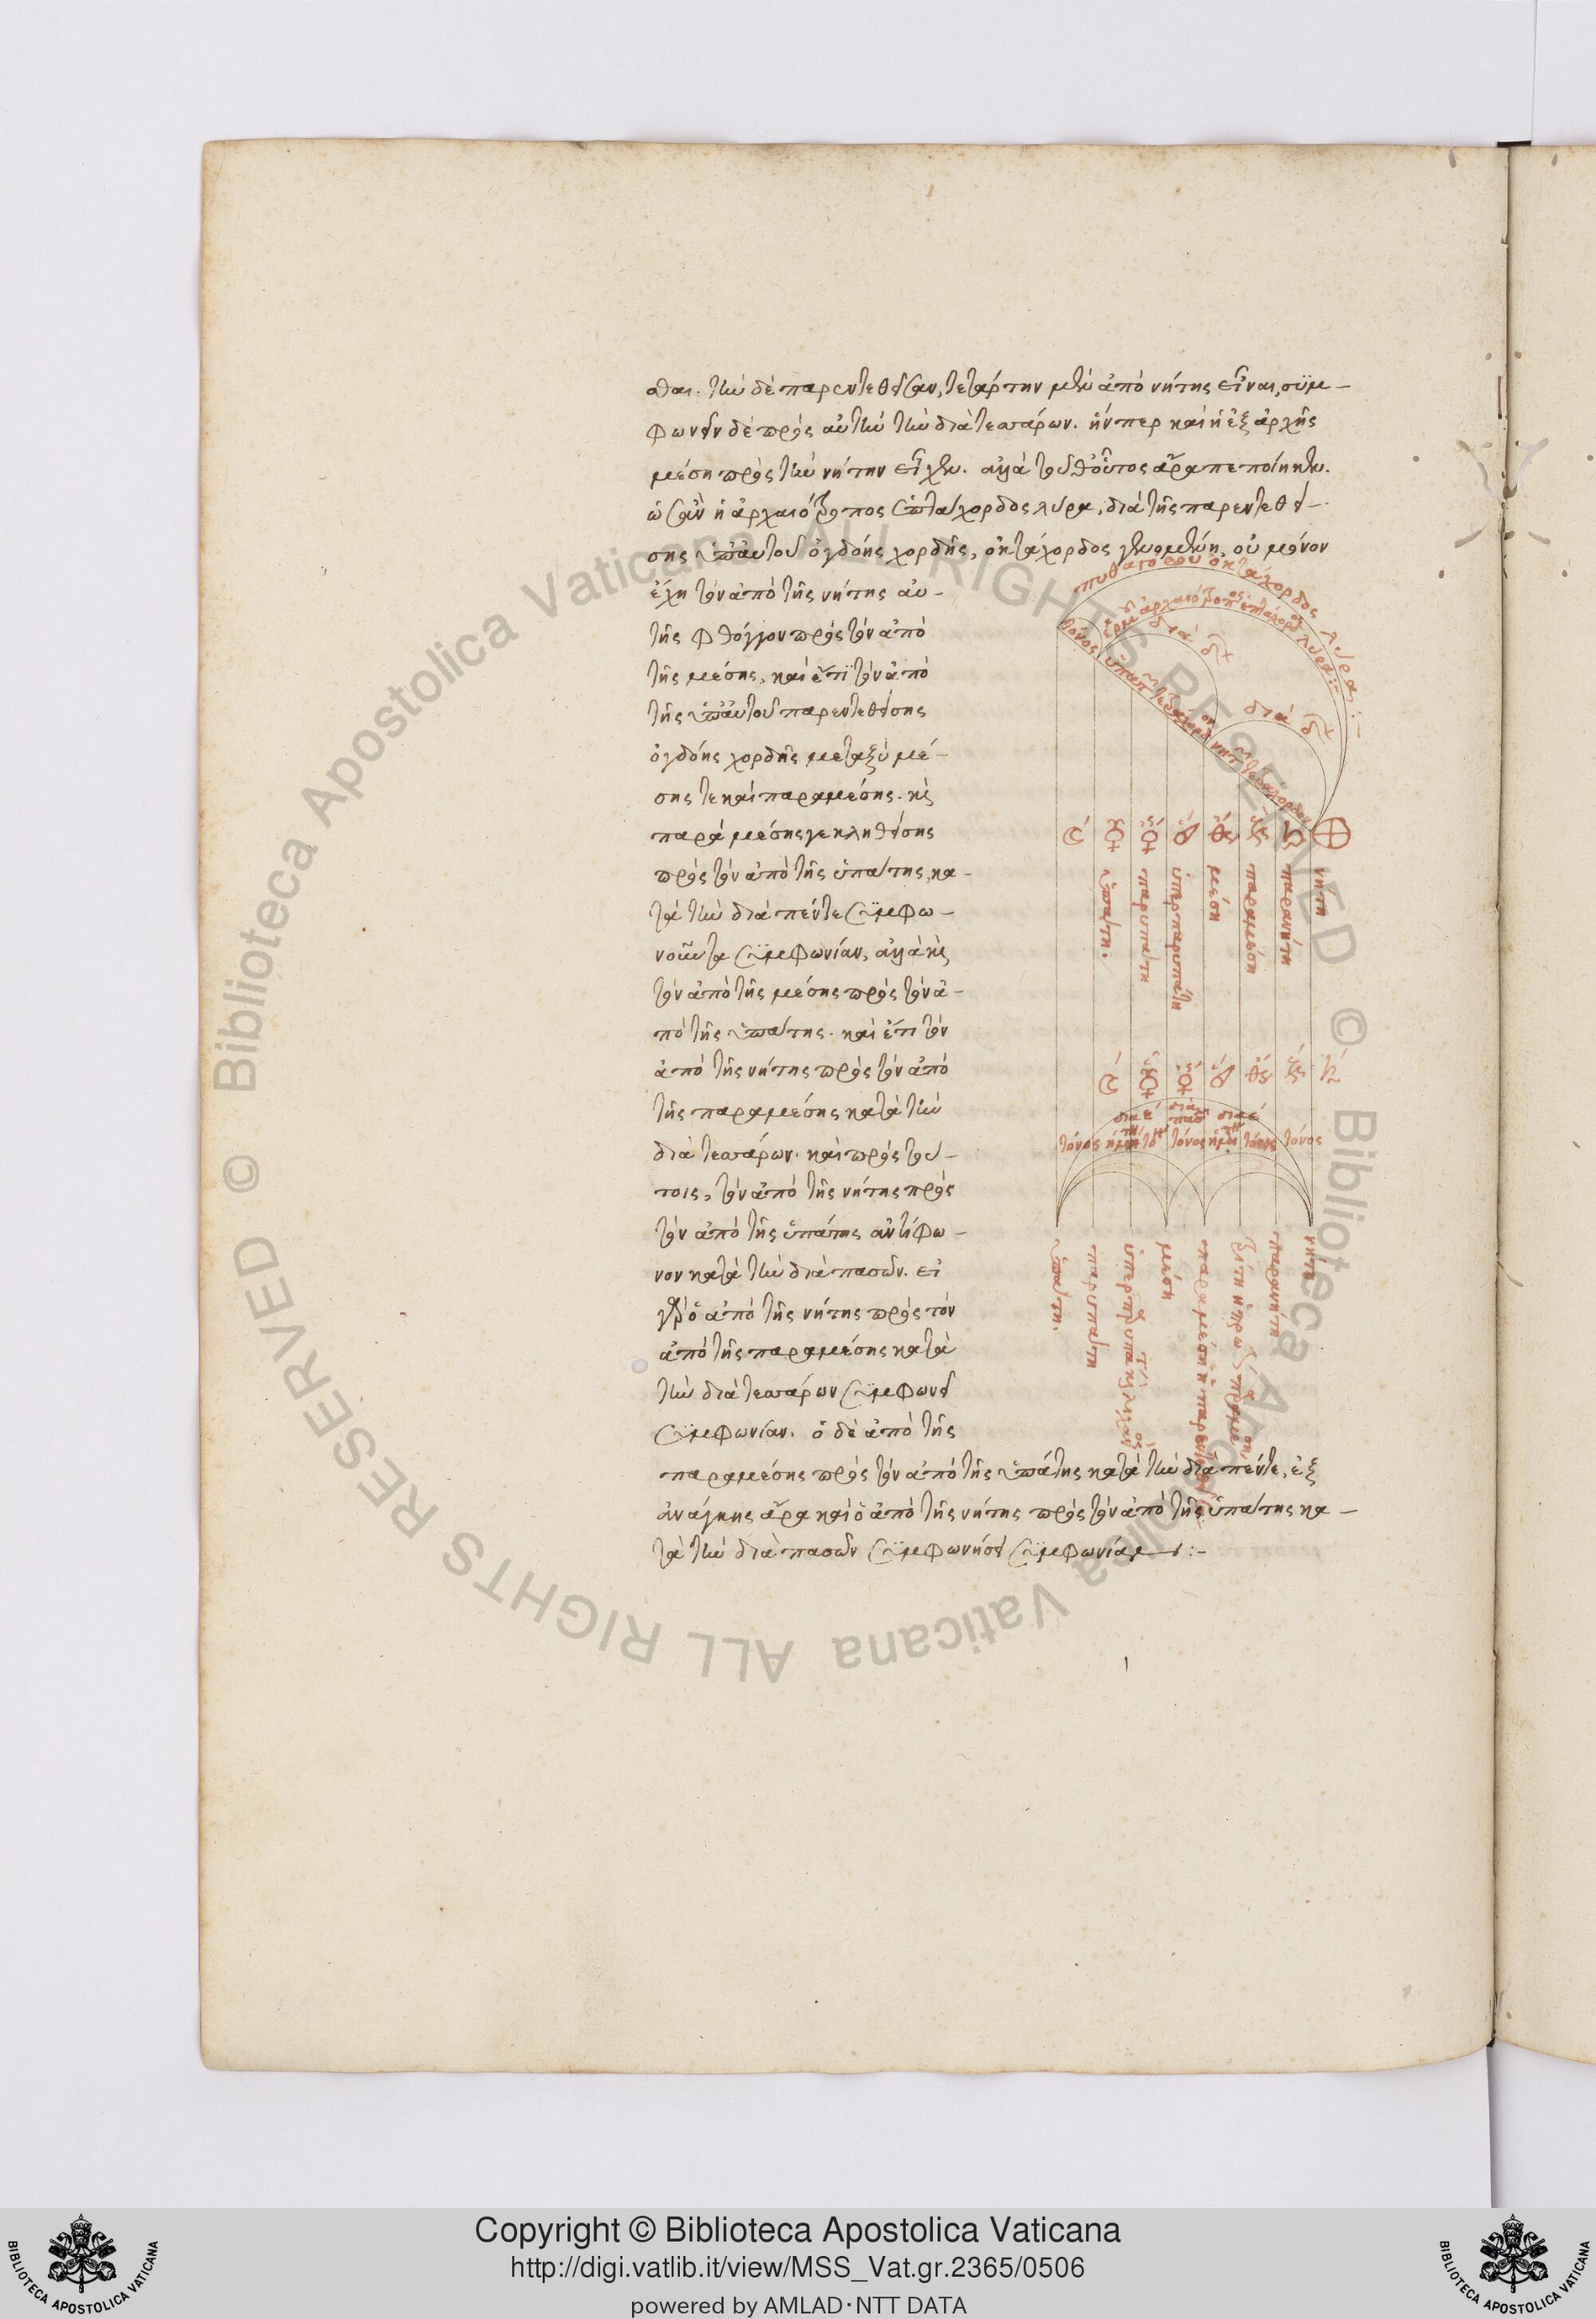 σθαι. τὴν δὲ παρεντεθεῖσαν, τετάρτην μὲν ἀπὸ νήτης εἶναι, συμ-
φωνεῖν δὲ πρὸς αὐτὴν τὴν διὰ τεσσάρων. ἥνπερ καὶ ἡ ἐξ ἀρχῆς
μέση πρὸς τὴν νήτην εἶχεν.
ἡ ἀρχαιότροπος ἑπτάχορδος λύρα, διὰ τῆς παρεντεθεί-
σης ὑπ' αὐτοῦ ὀγδόης χορδῆς, ὀκτάχορδος γενομένη, οὐ μόνον
ἔχη τὸν ἀπὸ τῆς νήτης αὐ-
τῆς φθόγγον πρὸς τὸν ἀπὸ
τῆς μέσης, καὶ ἔτι τὸν ἀπὸ
τῆς ὑπ' αὐτοῦ παρεντεθείσης
ὀγδόης χορδῆς μεταξὺ μέ-
σης τε καὶ παραμέσης. καὶ
παραμέσης γε κληθείσης
πρὸς τὸν ἀπὸ τῆς ὑπάτης, κα-
τὰ τὴν διὰ πέντε συμφω-
νοῦντα συμφωνίαν, ἀλλὰ καὶ
τὸν ἀπὸ τῆς μέσης πρὸς τὸν ἀ-
πὸ τῆς ὑπάτης. καὶ ἔτι τὸν
ἀπὸ τῆς νήτης πρὸς τὸν ἀπὸ
τῆς παραμέσης κατὰ τὴν
διὰ τεσσάρων. καὶ πρὸς τού-
τοις, τὸν ἀπὸ τῆς νήτης πρὸς
τὸν ἀπὸ τῆς ὑπάτης ἀντίφω-
νον κατὰ τὴν διὰ πασῶν. εἰ
γὰρ ὁ ἀπὸ τῆς νήτης πρὸς τὸν
ἀπὸ τῆς παραμέσης κατὰ
τὴν διὰ τεσσάρων συμφωνεῖ
συμφωνίαν. ὁ δὲ ἀπὸ τῆς
παραμέσης πρὸς τὸν ἀπὸ τῆς ὑπάτης κατὰ τὴν διὰ πέντε, ἐξ
ἀνάγκης ἄρα καὶ ὁ ἀπὸ τῆς νήτης πρὸς τὸν ἀπὸ τῆς ὑπάτης κα-
τὰ τὴν διὰ πασῶν συμφωνήσει συμφωνίαν:-
ὀκτάχορδος λύρα:-
διὰ δ
διὰ δ
τόνος
ὑπάτη.
παρυπάτη
ὑπερπαρυπάτη
μέση
παραμέση
παρανήτη
νήτη
τόνος
τόνος
τόνος
τόνος
ὑπάτη.
παρυπάτη
μέση
παραμέση
παρανήτη
νήτη
© Biblioteca Apostolica Vaticana ALL RIGHTS RESERVED © Biblioteca Apostolica Vaticana ALL RIGHTS RESERVED
BIBLIOTECA APOSTOLICA VATICANA
Copyright © Biblioteca Apostolica Vaticana
http://digi.vatlib.it/view/MSS_Vat.gr.2365/0506
powered by AMLAD·NTT DATA
BIBLIOTECA APOSTOLICA VATICANA